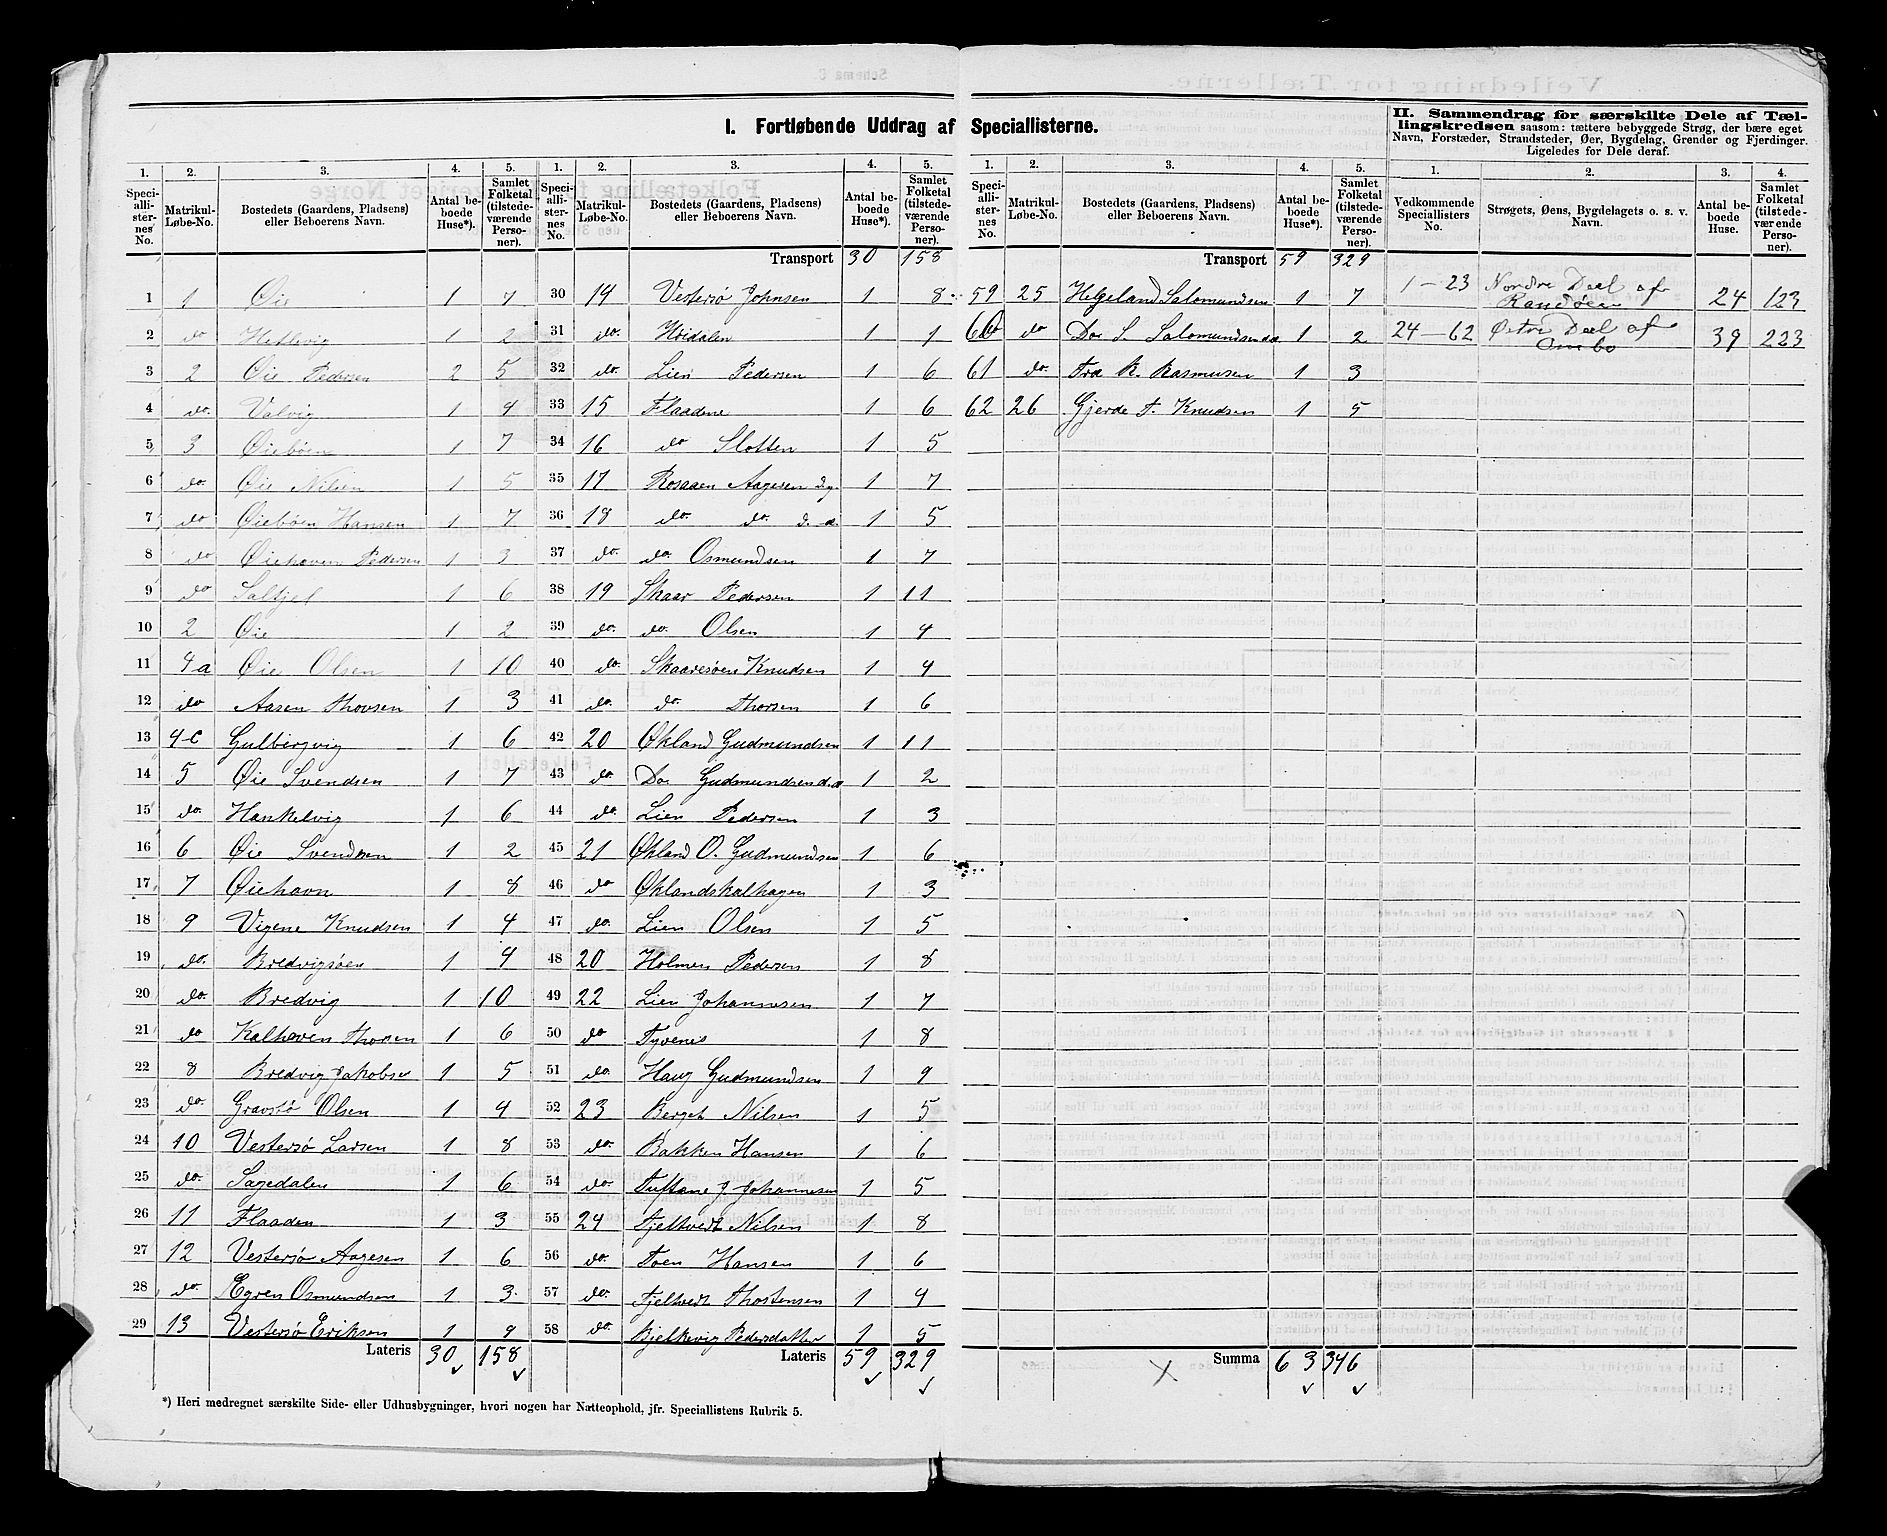 I. Fortløbende Uddrag af Speciallisterne.
II. Sammendrag for særskilte Dele af Tællingskredsen saasom: tættere bebyggede Strøg, der bære eget
Navn, Forstæder, Strandsteder, Øer, Bygdelag, Grender og Fjerdinger.
Ligeledes for Dele deraf.
1. 2. 3. 4. 5.
Speciallisternes No. Matrikul-Løbe-No. Bostedets (Gaardens, Pladsens) eller Beboerens Navn. Antal beboede Huse*). Samlet Folketal (tilstedeværende Personer).
1 1 Øie 1 7
2 do Hetlevig 1 2
3 2 Øie Pedersen 2 5
4 do. Valvig 1 4
5 3 Øiebøen 1 7
6 do. Øie Nilsen 1 5
7 do Øiebøen Hansen 1 7
8 do Øiehaven Pedersen 1 3
9 do Saltjel 1 6
10 2 Øie 1 2
11 4a Øie Olsen 1 10
12 do Aasen Thorsen 1 3
13 4c Gulbergvig 1 6
14 5 Øie Svendsen 1 7
15 do. Hankelvig 1 6
16 6 Øie Svendsen 1 2
17 7 Øiehavn 1 8
18 9 Vigene Knudsen 1 4
19 do. Bredvigsøen 1 4
20 do. Bredvig 1 10
21 do Kalhaven Thorsen 1 6
22 8 Bredvig Jakobse 1 5
23 do. Gravsø Olsen 1 4
24 10 Vestersø Larsen 1 8
25 do. Sagedalen 1 6
26 11 Flaaden 1 3
27 12 Vestersø Aagesen 1 6
28 do. Egren Osmundsen 1 3
29 13 Vestersø Eriksen 1 9
Lateris 30 158
1. 2. 3. 4. 5.
Speciallisternes No. Matrikul-Løbe-No. Bostedets (Gaardens, Pladsens) eller Beboerens Navn. Antal beboede Huse*). Samlet Folketal (tilstedeværende Personer).
Transport 30 158
30 14 Vestersø Johnsen 1 8
31 do. 1 1
32 do. Lien Pedersen 1 6
33 15 Flaadene 1 6
34 16 do Slotten 1 5
35 17 Rosaaen Aagesen 1 7
36 18 do. do. 1 5
37 do. do. Osmundsen 1 7
38 19 Skaar Pedersen 1 11
39 do. do. Olsen 1 4
40 do. Skaaresøen Knudsen 1 4
41 do. do. Thorsen 1 6
42 20 Økland Gudmundsen 1 11
43 do. Do. Gudmundsen 1 2
44 do. Lien Pedersen 1 3
45 21 Økland O. Gudmundsen 1 6
46 do Øklandskalhagen 1 3
47 do. Lien Olsen 1 5
48 20 Holmen Pedersen 1 8
49 22 Lien Johannesen 1 7
50 do Tyvenes 1 8
51 do. Haug Gudmundsen 1 9
52 23 Berget Nilsen 1 5
53 do. Bakken Hansen 1 6
54 do. Tuftene J. Johannesen 1 5
55 24 Fjeltvedt Nilsen 1 8
56 do. Toen Hansen 1 6
57 do. Fjeltvedt Thostensen 1 4
58 do. Bjelkevig Pedersdatter 1 5
Lateris 59 329
1. 2. 3. 4. 5.
Speciallisternes No. Matrikul-Løbe-No. Bostedets (Gaardens, Pladsens) eller Beboerens Navn. Antal beboede Huse*). Samlet Folketal (tilstedeværende Personer).
Transport 59 329
59 25 Helgeland Salomundsen 1 7
60 do Do. S. Salomundsen 1 2
61 do. Træ R. Rasmusen 1 3
62 26 Gjerde T. Knudsen 1 5
Summa 63 346
1. 2. 3. 4.
Vedkommende Speciallisters No. Strøgets, Øens, Bygdelagets o. s. v. Navn. Antal beboede Huse. Samlet Folketal (tilstedeværende Personer).
1-23 Nordre Deel af Randøen 24 123
24-62 Østre Deel af Ombo 39 223
*) Heri medregnet særskilte Side- eller Udhusbygninger, hvori nogen har Natteophold, jfr. Speciallistens Rubrik 5.